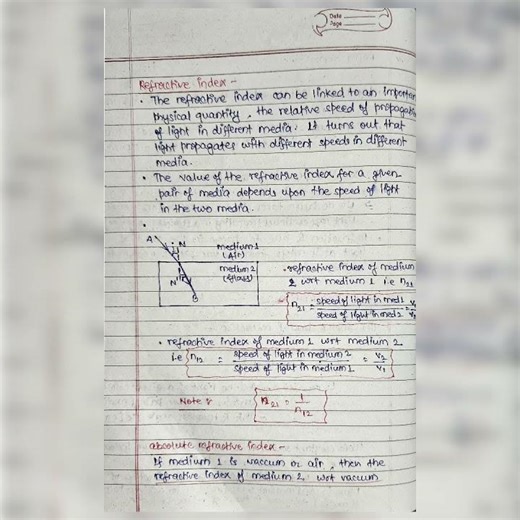 Date
Page
Refractive index -
• The refractive index can be linked to an importan
physical quantity, the relative speed of propagati
of light in different media. It turns out that
light propagates with different speeds in different
media.
• The value of the refractive index for a given
pair of media depends upon the speed of light
in the two media.
A N medium 1
(Air)
medium 2
N' (glass)
• refractive index of medium
2 wrt medium 1 i.e n21
n21 = speed of light in med 1 = v1
speed of light in med 2 v2
• refractive index of medium 1 wrt medium 2
i.e n12 = speed of light in medium 2 = v2
speed of light in medium 1 v1
Note :
n21 = 1
n12
absolute refractive index -
If medium 1 is vaccum or air, then the
refractive index of medium 2 wrt vacuum